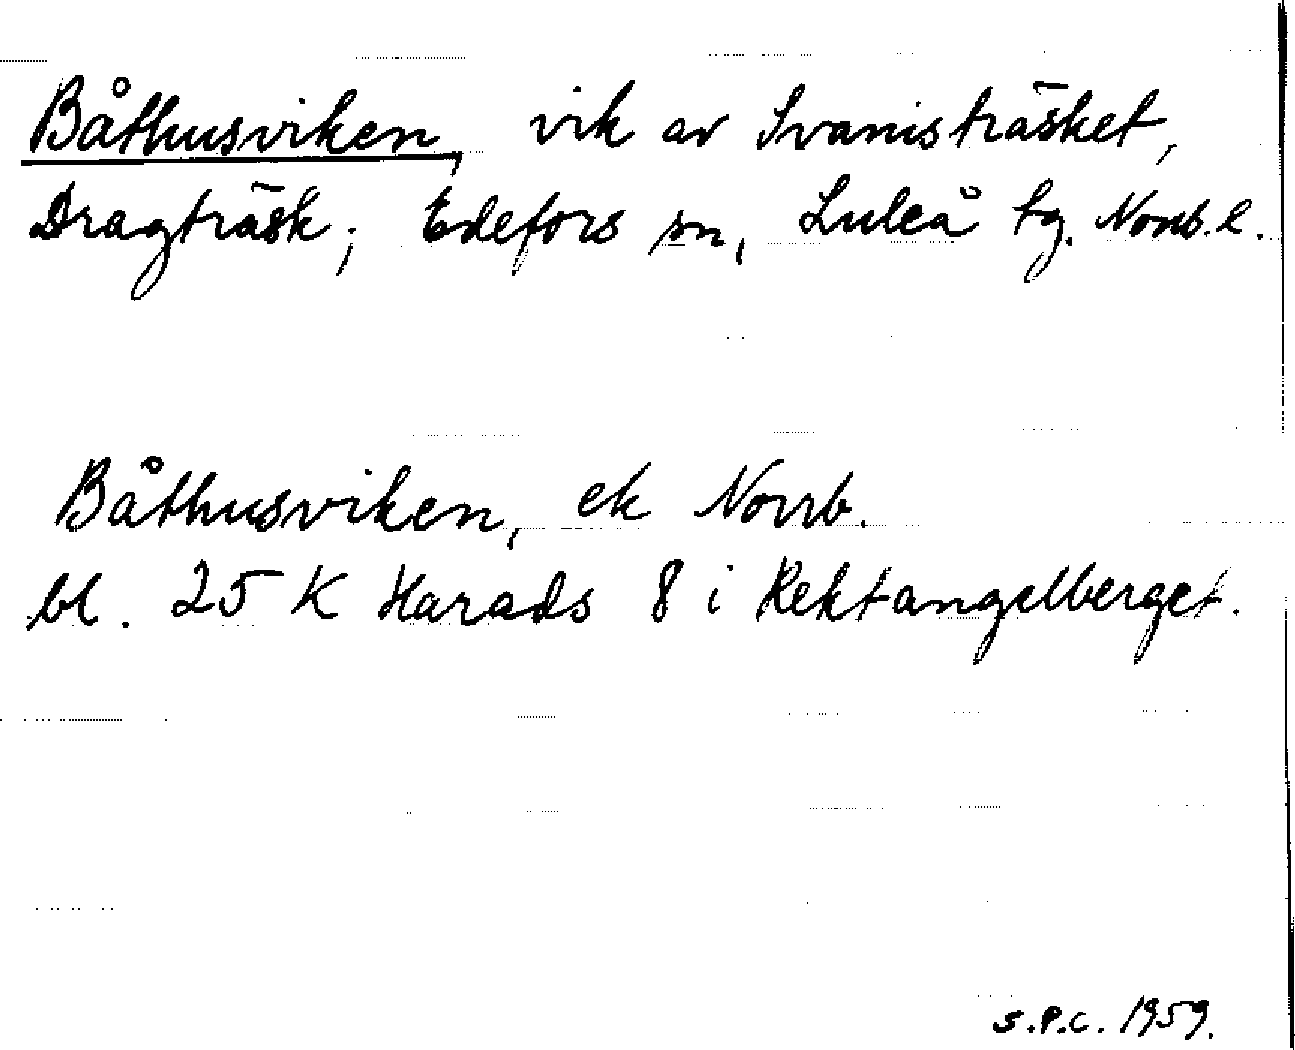 Båthusviken, vik av Svanisträsket,
Dragträsk; Edefors sn, Luleå tg. Norrb. l.
Båthusviken, ek Norrb.
bl. 25 K Harads 8 i Rektangelberget.
S.P.C. 1959.